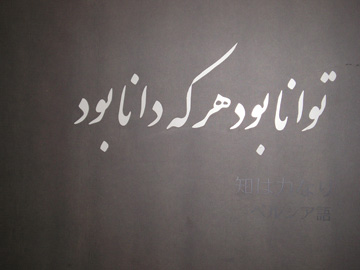 توانا بود هر که دانا بود
知は力なり
ペルシア語